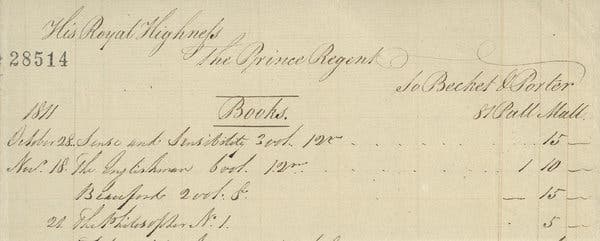 His Royal Highness
28514
The Prince Regent
To Becket & Porter
1811 Books. 81 Pall Mall.
October 28. Sense and Sensibility 3 vol. 12o 15 —
Novr. 18. The Englishman 6 vol. 12o 1 10 —
Beauford 2 vol. 8. — 15 —
21 The Philosopher No. 1. — 5 —